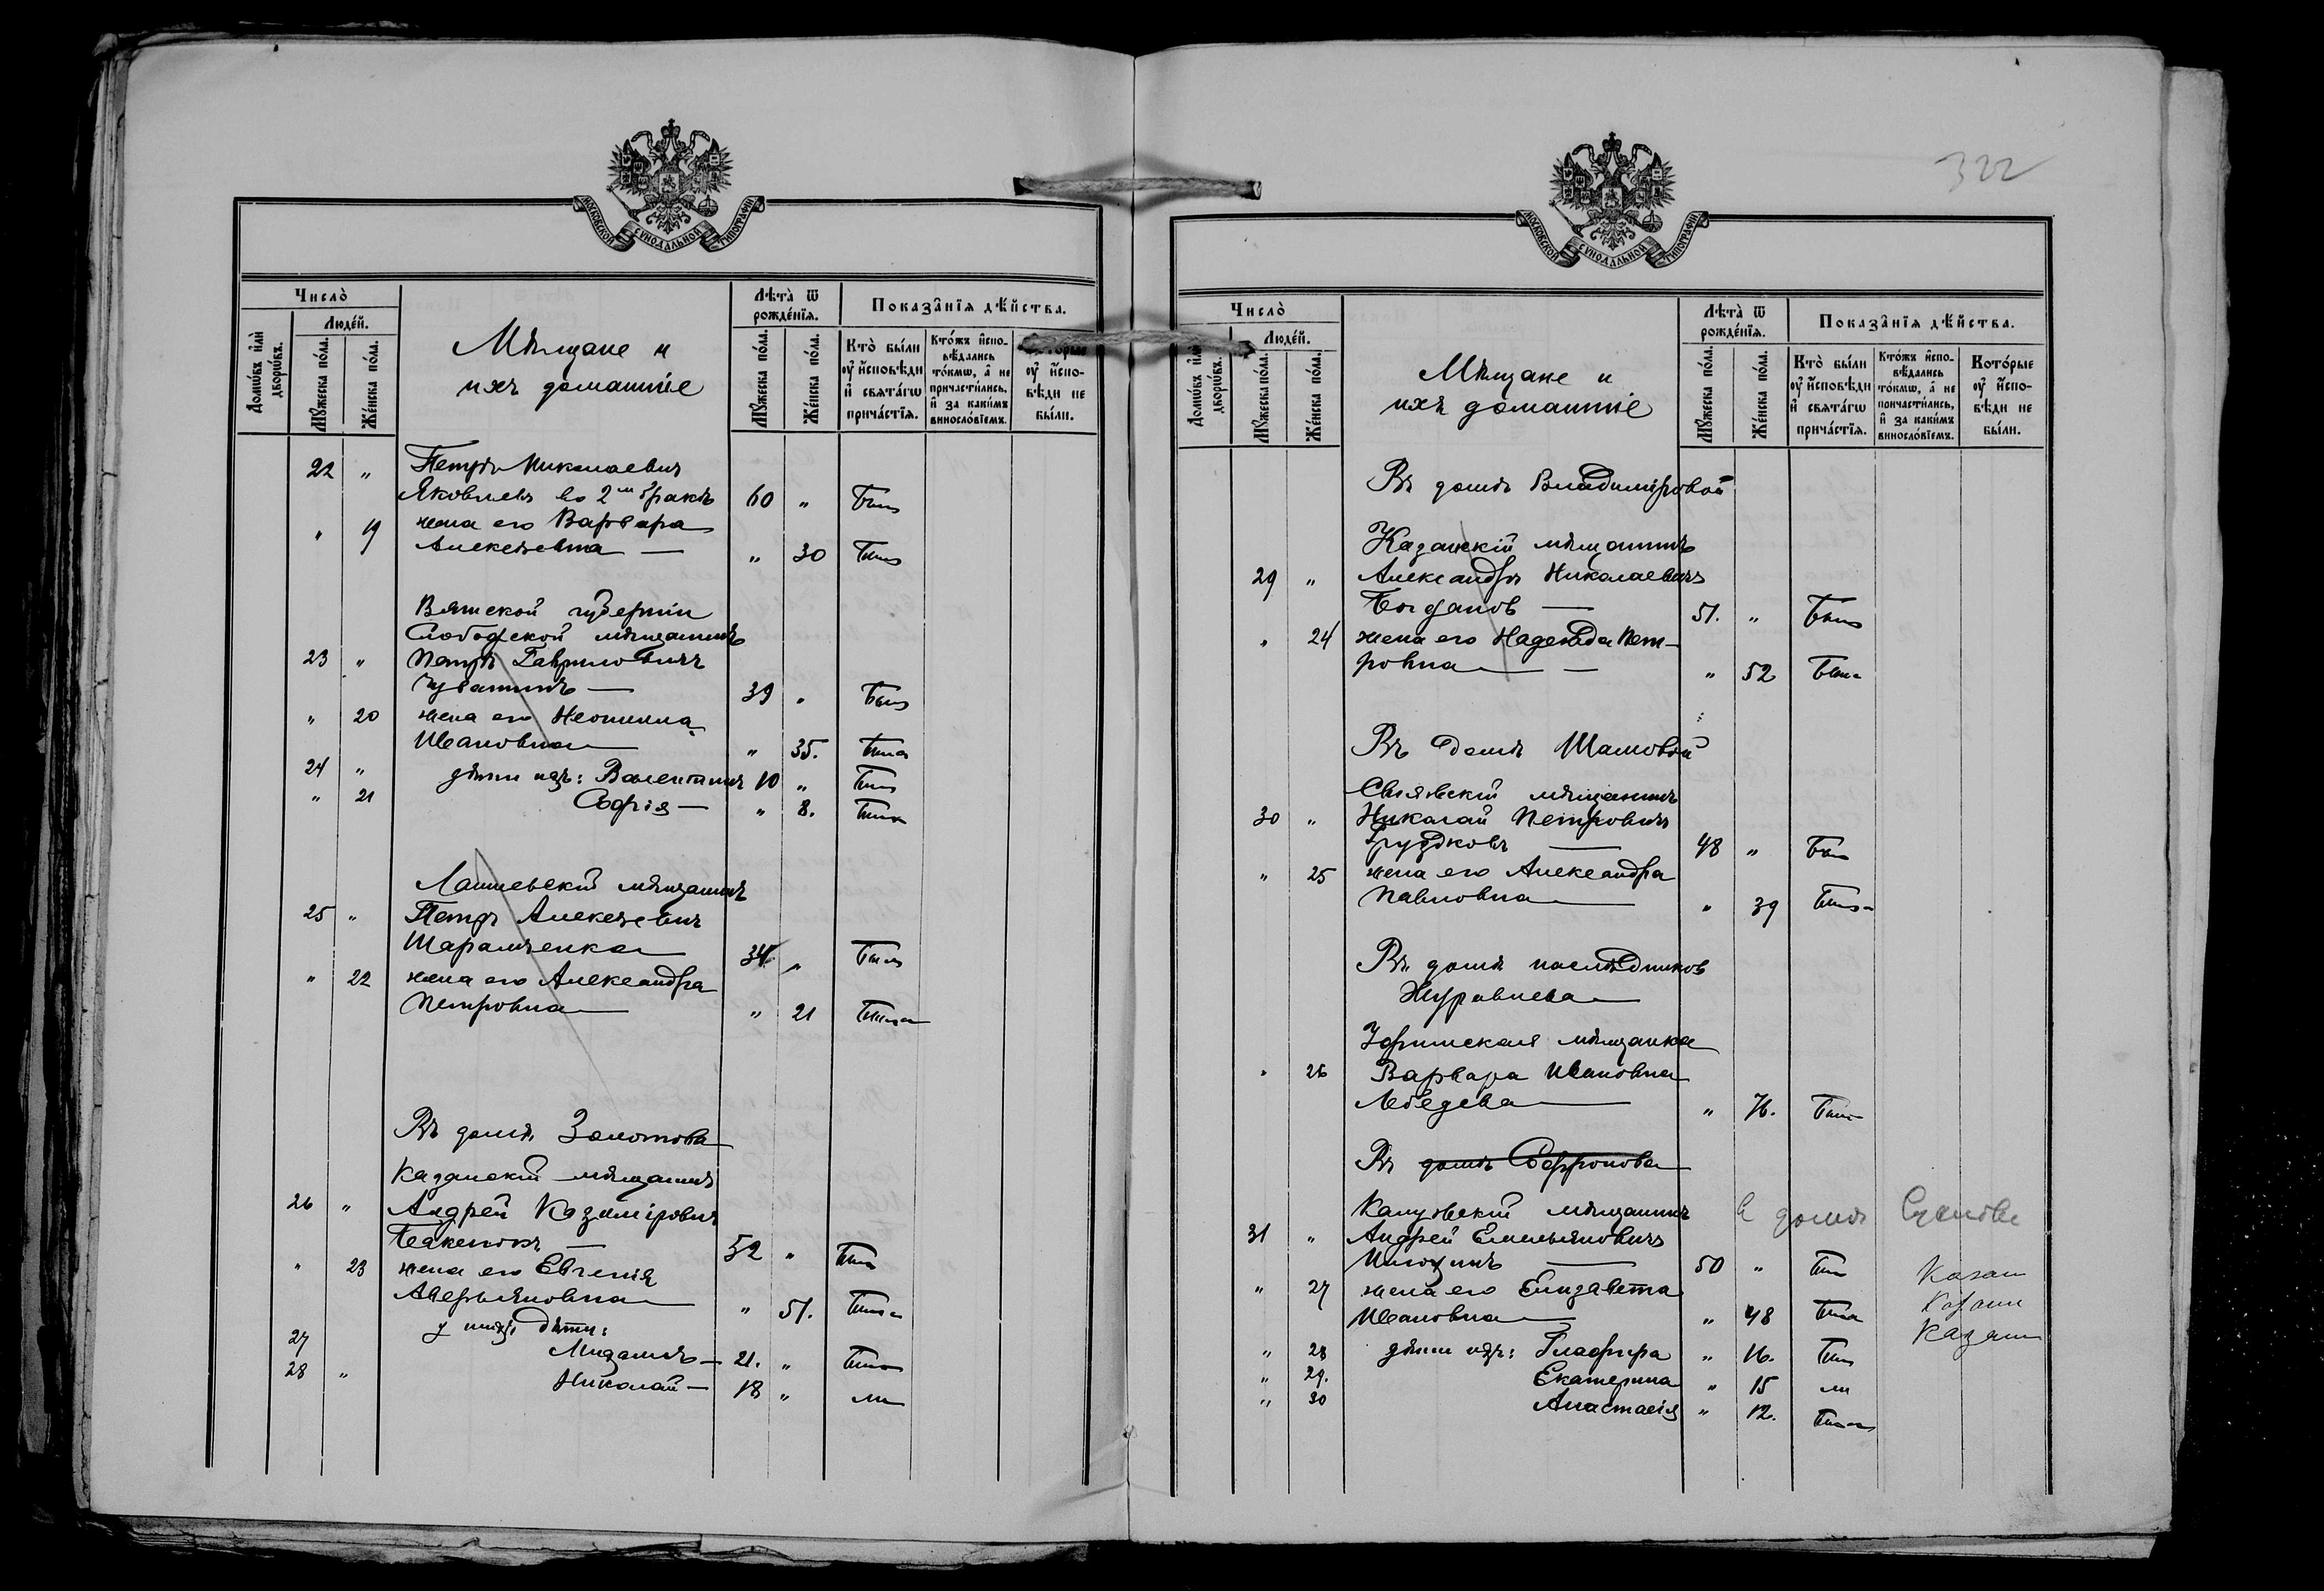 МОСКОВСКОЙ СѴНОДАЛЬНОЙ ТИПОГРАФІИ
Число̀
Людéй.
Домѡ́въ и҆лѝ дворѡ́въ.
Мꙋ́жеска по́ла.
Же́нска по́ла.
Мѣщане и
ихъ домашніе
Лѣ́та ѿ рожде́нїѧ.
Мꙋ́жеска по́ла.
Же́нска по́ла.
Показа̑нїѧ дѣ́йства.
Кто̀ бы́ли ᲂу҆ и҆сповѣ́ди и҆ свѧта́гѡ прича́стїѧ.
Кто́жъ и҆сповѣ́дались то́кмѡ, а҆ не причасти́лись, и҆ за каки́мъ винослові́емъ.
ᲂу҆ и҆сповѣ́ди не бы́ли.
22 " Петръ Николаевич
Яковлевъ во 2мъ бракѣ 60 " Былъ
" 19 жена его Варвара
Алексѣевна — " 30 Была
Вятской губерніи
Слободской мѣщанинъ
23 " Петръ Гавриловичъ
Чувашинъ — 39 " Былъ
" 20 жена его Неонилла
Ивановна " 35. Была
24 " дѣти ихъ: Валентинъ 10 " Былъ
" 21 Софія — " 8. Была
Лаишевскій мѣщанинъ
25 " Петръ Алексѣевич
34. " Былъ
" 22 жена его Александра
Петровна " 21 Была
Въ домѣ Золотова
Казанскій мѣщанинъ
26 " Андрей Казимірович
— 52 " Былъ
" 23 жена его Евгенія
Аверьяновна " 51. Была
у нихъ дѣти:
27 — 21. "
28 " Николай — 18 "
322
МОСКОВСКОЙ СѴНОДАЛЬНОЙ ТИПОГРАФІИ
Число̀
Людéй.
Домѡ́въ и҆лѝ дворѡ́въ.
Мꙋ́жеска по́ла.
Же́нска по́ла.
Мѣщане и
ихъ домашніе
Лѣ́та ѿ рожде́нїѧ.
Мꙋ́жеска по́ла.
Же́нска по́ла.
Показа̑нїѧ дѣ́йства.
Кто̀ бы́ли ᲂу҆ и҆сповѣ́ди и҆ свѧта́гѡ прича́стїѧ.
Кто́жъ и҆сповѣ́дались то́кмѡ, а҆ не причасти́лись, и҆ за каки́мъ винослові́емъ.
Кото́рые ᲂу҆ и҆сповѣ́ди не бы́ли.
Въ домѣ Владиміровой
Казанскій мѣщанинъ
29 " Александръ Николаевичъ
Богданов — 51. " Былъ
" 24 жена его Надежда Пет-
ровна — " 52 Была
Въ домѣ Шамовой
Свіяжскій мѣщанинъ
30 " Николай Петровичъ
Груздковъ — 48 " Былъ
" 25 жена его Александра
Павловна " 39 Была
Въ домѣ наслѣдников
Журавлева
Уфимская мѣщанка
" 26 Варвара Ивановна
Лебедева — " 76. Была
Въ домѣ Софронова
Калужскій мѣщанинъ В домѣ
31 " Андрей Емельяновичъ
— 50 " Былъ Казан
" 27 жена его Елизавета Казан
Ивановна " 48 Была Казан
" 28 дѣти ихъ: Глафира " 16. Была
" 29. Екатерина " 15
" 30 Анастасія " 12. Была